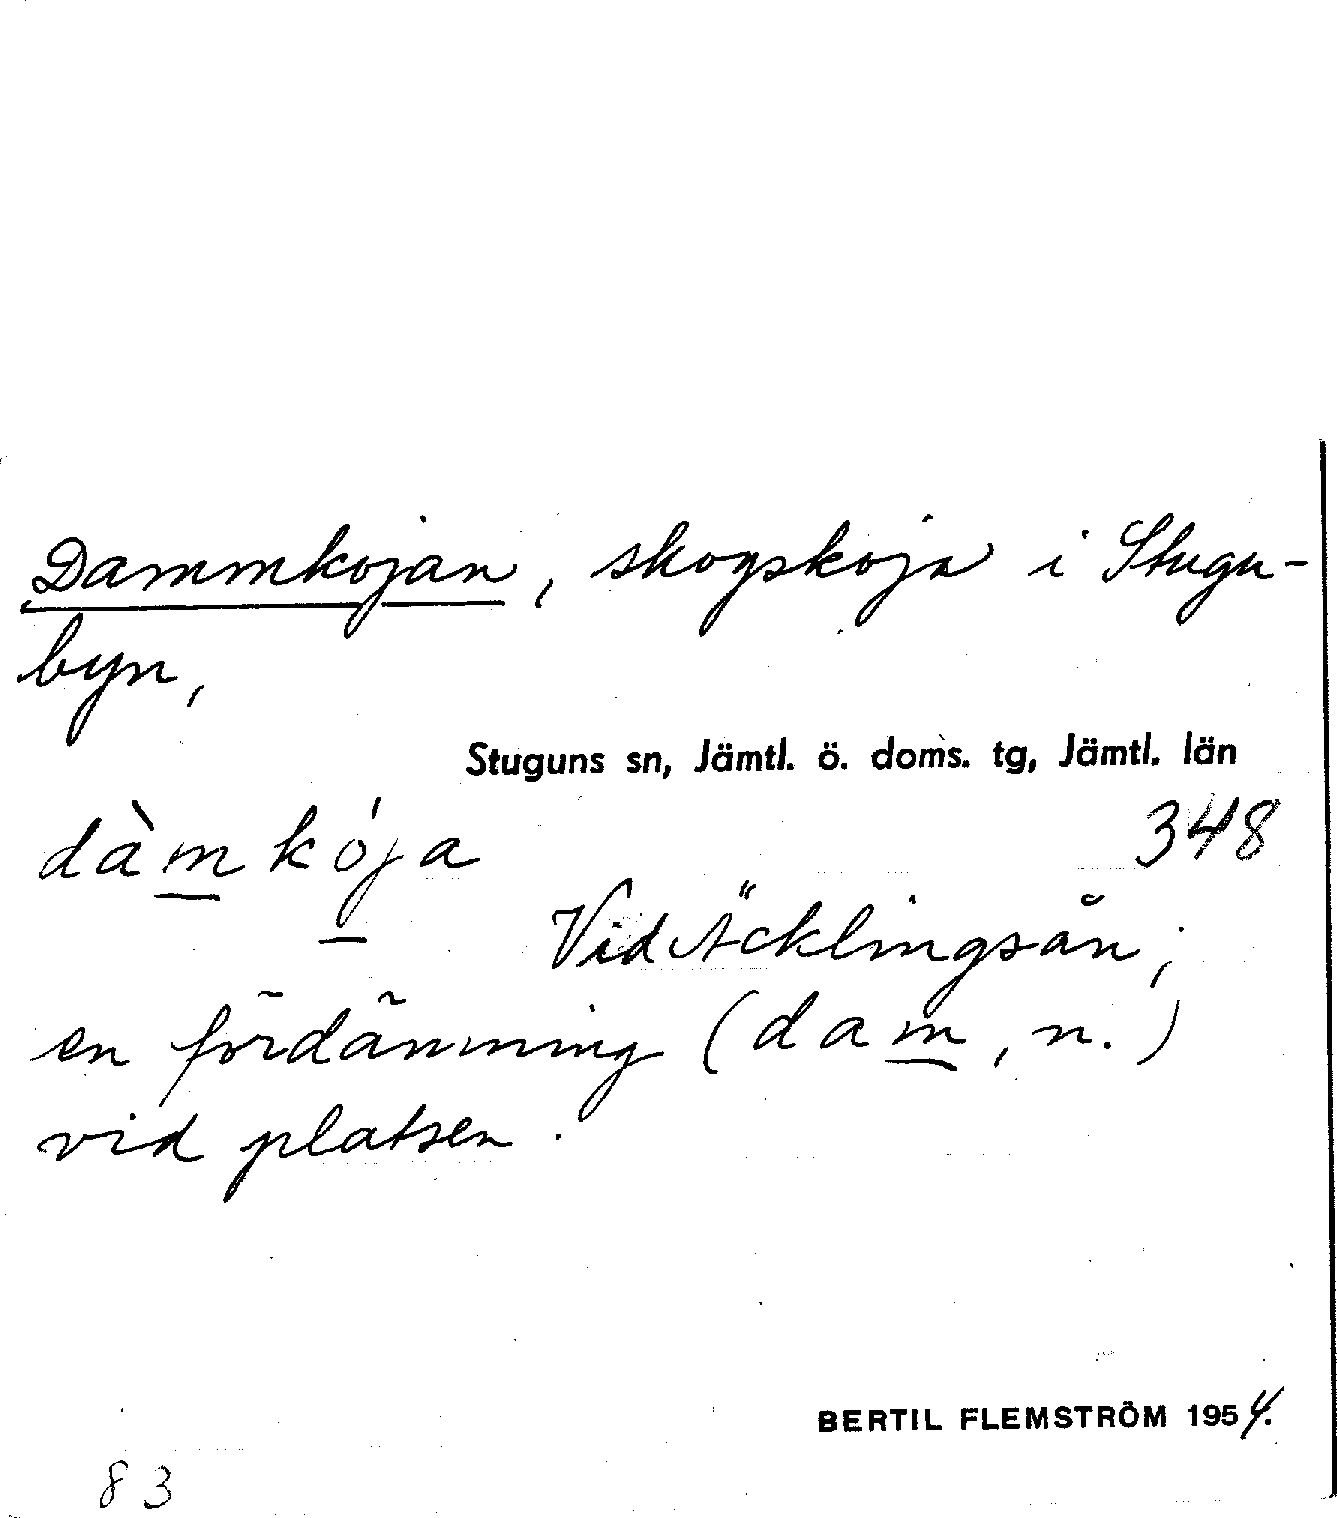 Dammkojan, skogskoja i Stugu-
byn,
Stuguns sn, Jämtl. ö. doms. tg, Jämtl. län
dàmkója
348
Vid Äcklingsån;
en fördämning (dam, n.)
vid platsen.
BERTIL FLEMSTRÖM 1954.
83